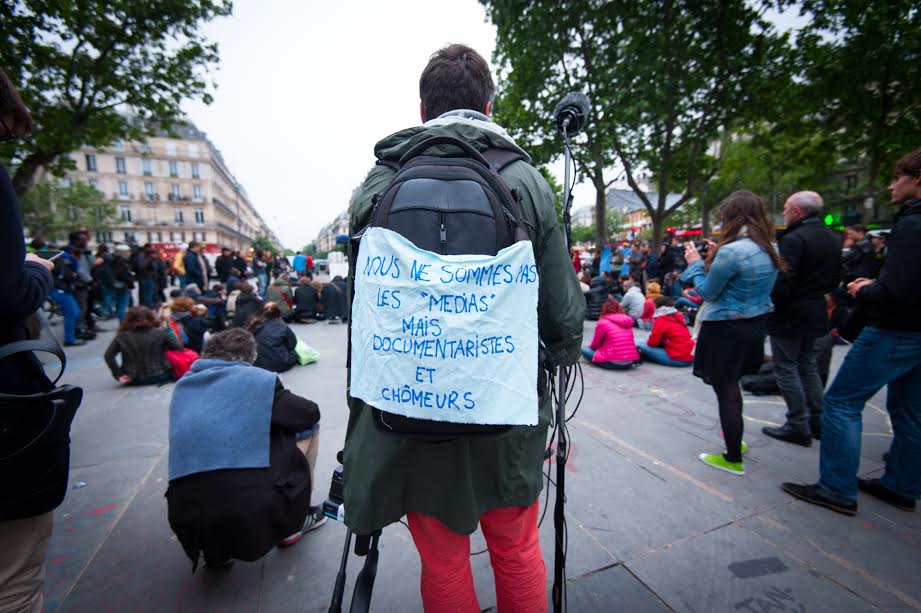 NOUS NE SOMMES PAS
LES "MEDIAS"
MAIS
DOCUMENTARISTES
ET
CHÔMEURS